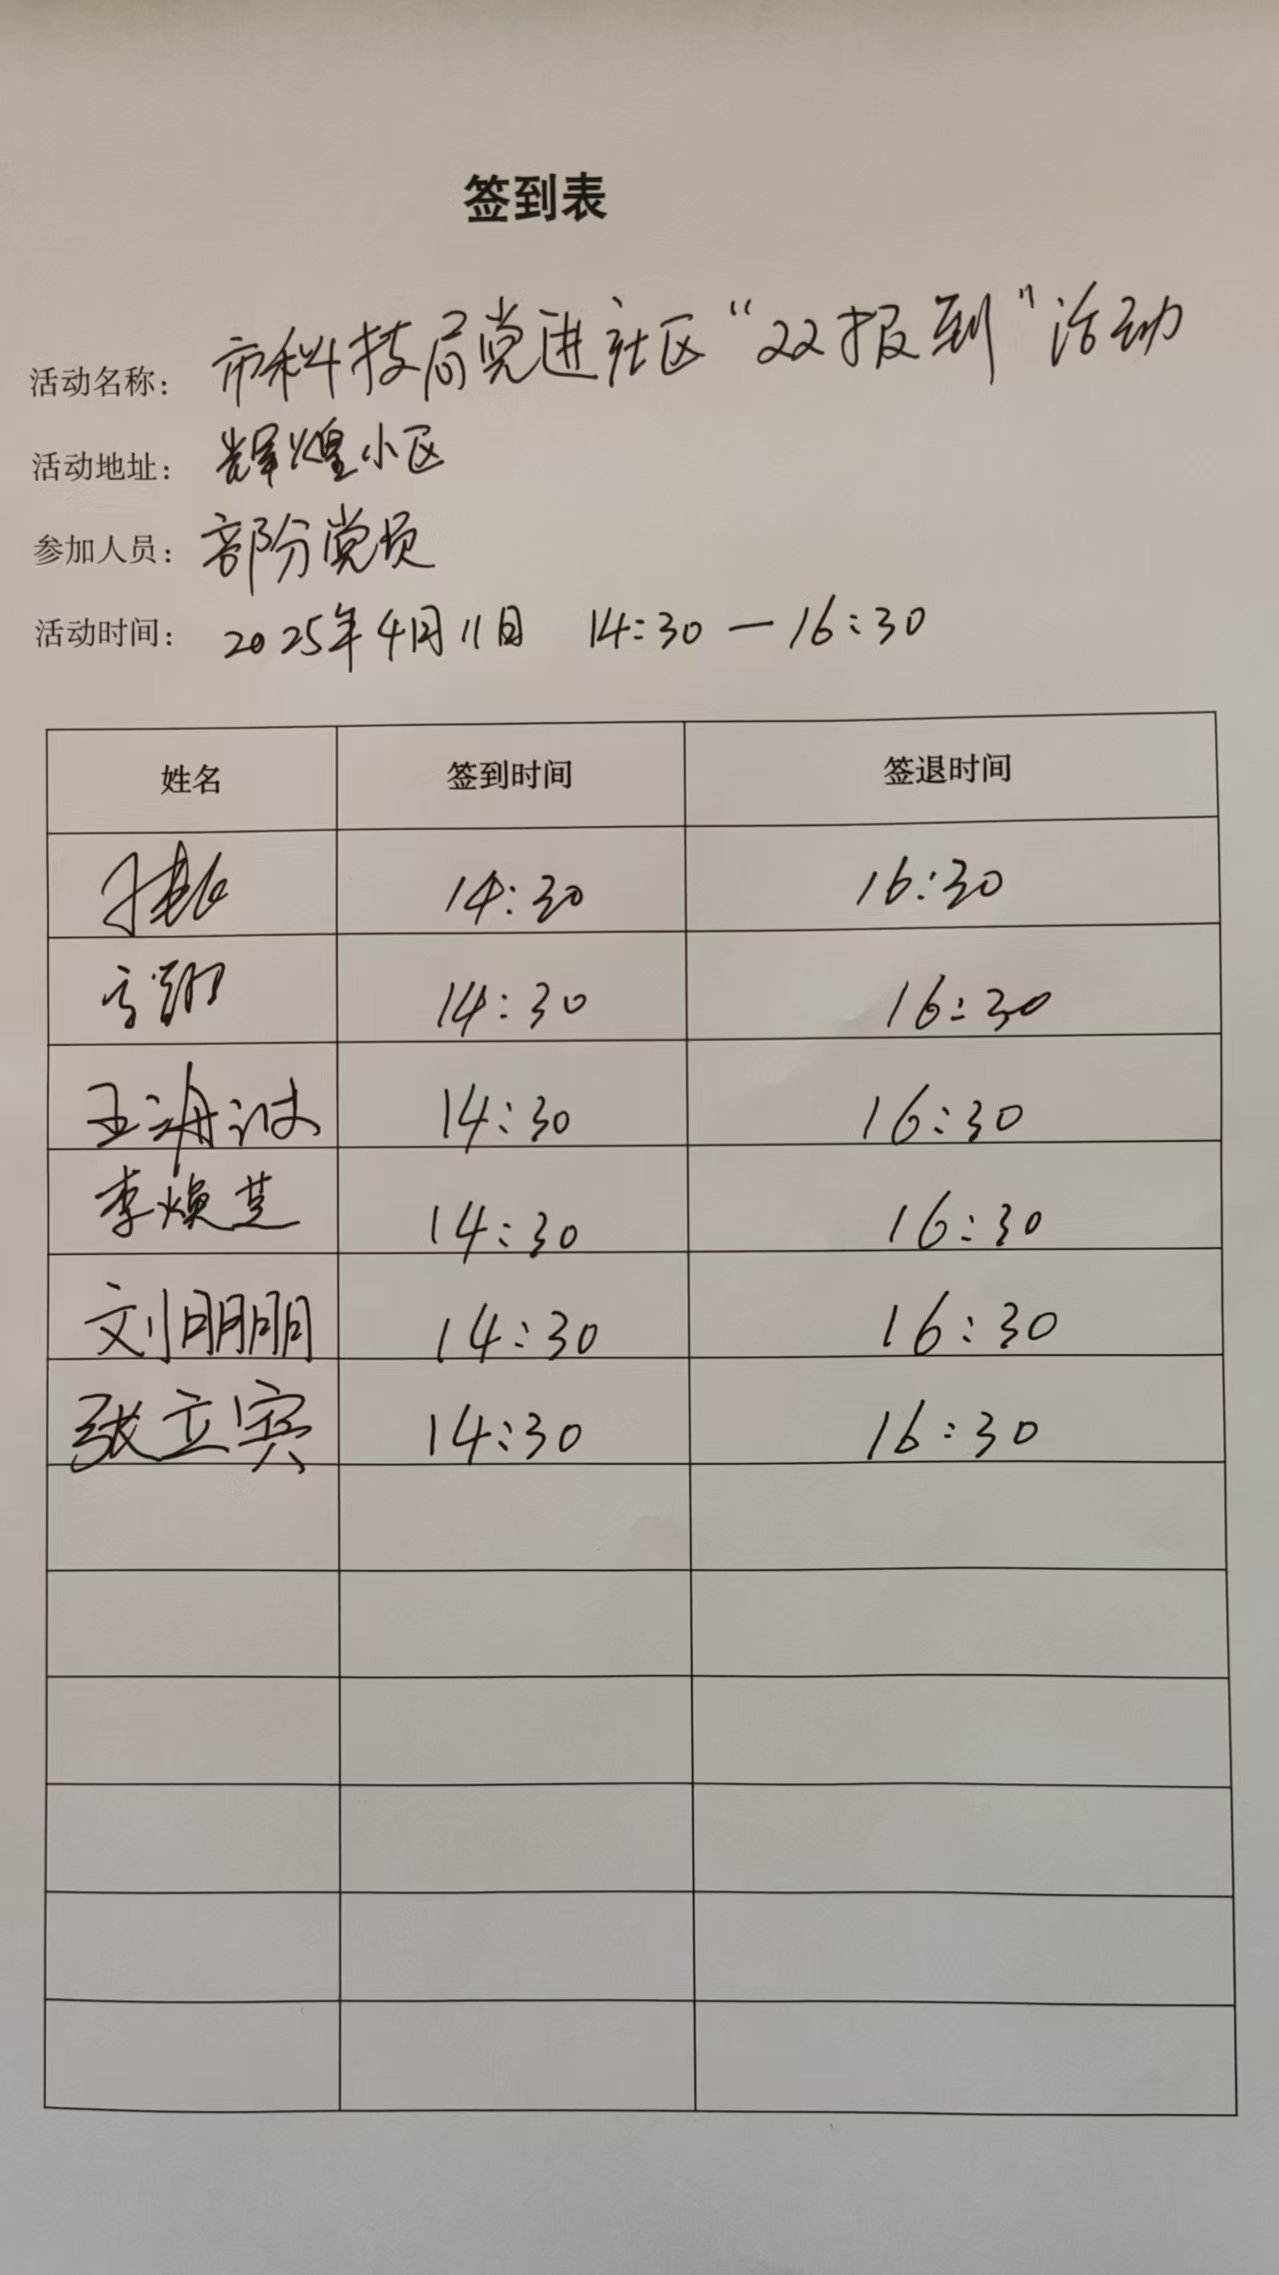 签到表
活动名称： 市科技局党进社区“双报到”活动
活动地址： 辉煌小区
参加人员： 部分党员
活动时间： 2025年4月11日 14:30 — 16:30
姓名 签到时间 签退时间
14:30 16:30
14:30 16:30
王 14:30 16:30
李焕芝 14:30 16:30
刘明明 14:30 16:30
张立宾 14:30 16:30